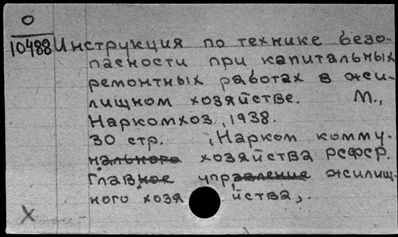 О
10488 Инструкция по технике безо-
пасности при капитальных
ремонтных работах в жи-
лищном хозяйстве. М.,
Наркомхоз, 1938.
30 стр. , Нарком комму-
нального хозяйства РСФСР.
Главное управление жилищ-
ного хозяйства,.
X